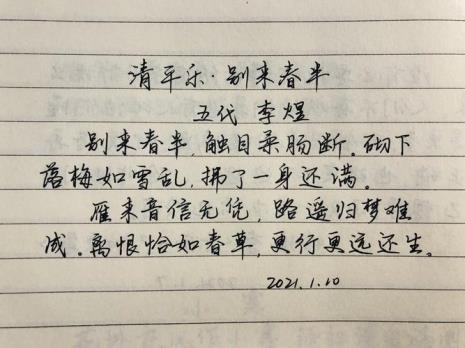 清平乐·别来春半
五代 李煜
别来春半,触目柔肠断。砌下
落梅如雪乱,拂了一身还满。
雁来音信无凭,路遥归梦难
成。离恨恰如春草,更行更远还生。
2021.1.10